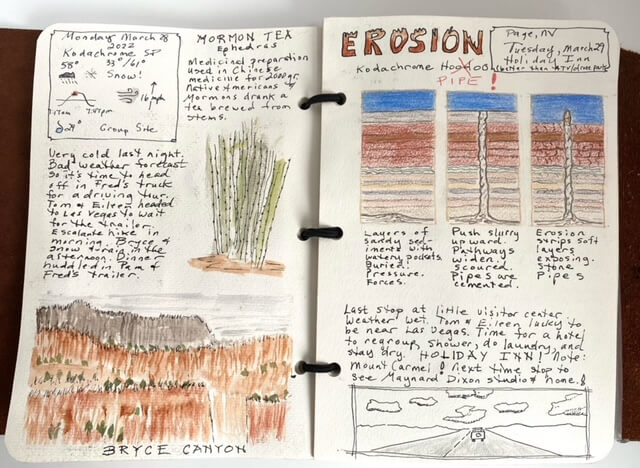 Monday March 28
2022
Kodachrome SP
58° 33°/61°
Snow!
16 mph
7:17am 7:45pm
29° Group Site
MORMON TEA
Ephedras
Medicinel preparation
used in Chinese
medicine for 2000 yr.
Native Americans &
Mormons drank a
tea brewed from
stems.
Very cold last night.
Bad weather forecast
so it's time to head
off in Fred's truck
for a driving tour.
Tom & Eileen headed
to Las Vegas to wait
for the trailer.
Escalante hike in
morning Bryce &
snow for us in the
afternoon. Dinner
huddled in Pam &
Fred's trailer.
BRYCE CANYON
EROSION
Kodachrome Hoodoos
PIPE!
Page, NV
Tuesday, March 29
Holiday Inn
(better than
Layers of
sandy sed-
iment with
watery pockets
Buried.
Pressure.
Forces.
Push slurry
upward.
Pathways
widen,
scoured.
Pipes are
cemented.
Erosion
strips soft
layers
exposing
stone
Pipes
Last stop at little visitor center
Weather wet. Tom & Eileen lucky to
be near Las Vegas. Time for a hotel
to regroup, shower, do laundry, and
stay dry. HOLIDAY INN! Note:
Mount Carmel! next time stop to
see Maynard Dixon studio & home.